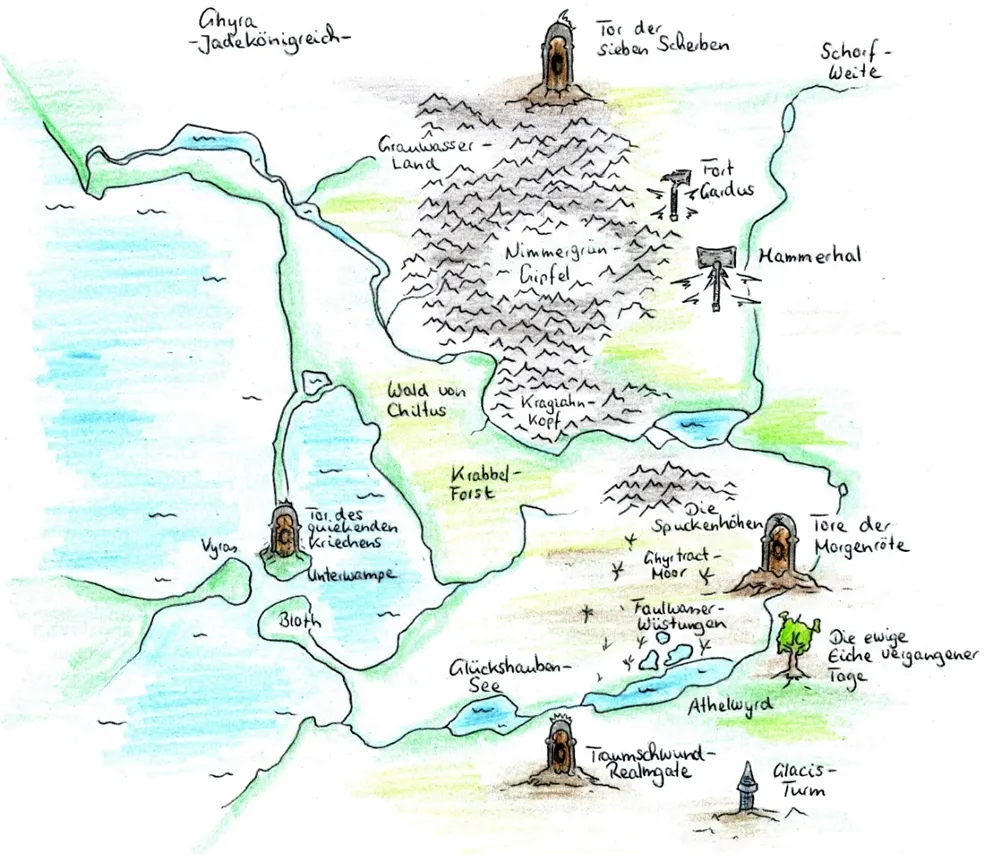 Ghyra
-Jadekönigreich-
Tor der
sieben Scherben
Schorf-
Weite
Grauwasser-
Land
Fort
Gardus
Nimmergrün-
Gipfel
Hammerhal
Wald von
Chiltus
Kragzahn-
Kopf
Krabbel-
Forst
Die
Spuckenhöhen
Tor des
quiekenden
Kriechens
Tore der
Morgenröte
Vyras
Ghyrtract-
Moor
Unterwampe
Bloth
Faulwasser-
Wüstungen
Die ewige
Eiche vergangener
Tage
Glückshauben-
See
Athelwyrd
Traumschwund-
Realmgate
Glacis-
Turm